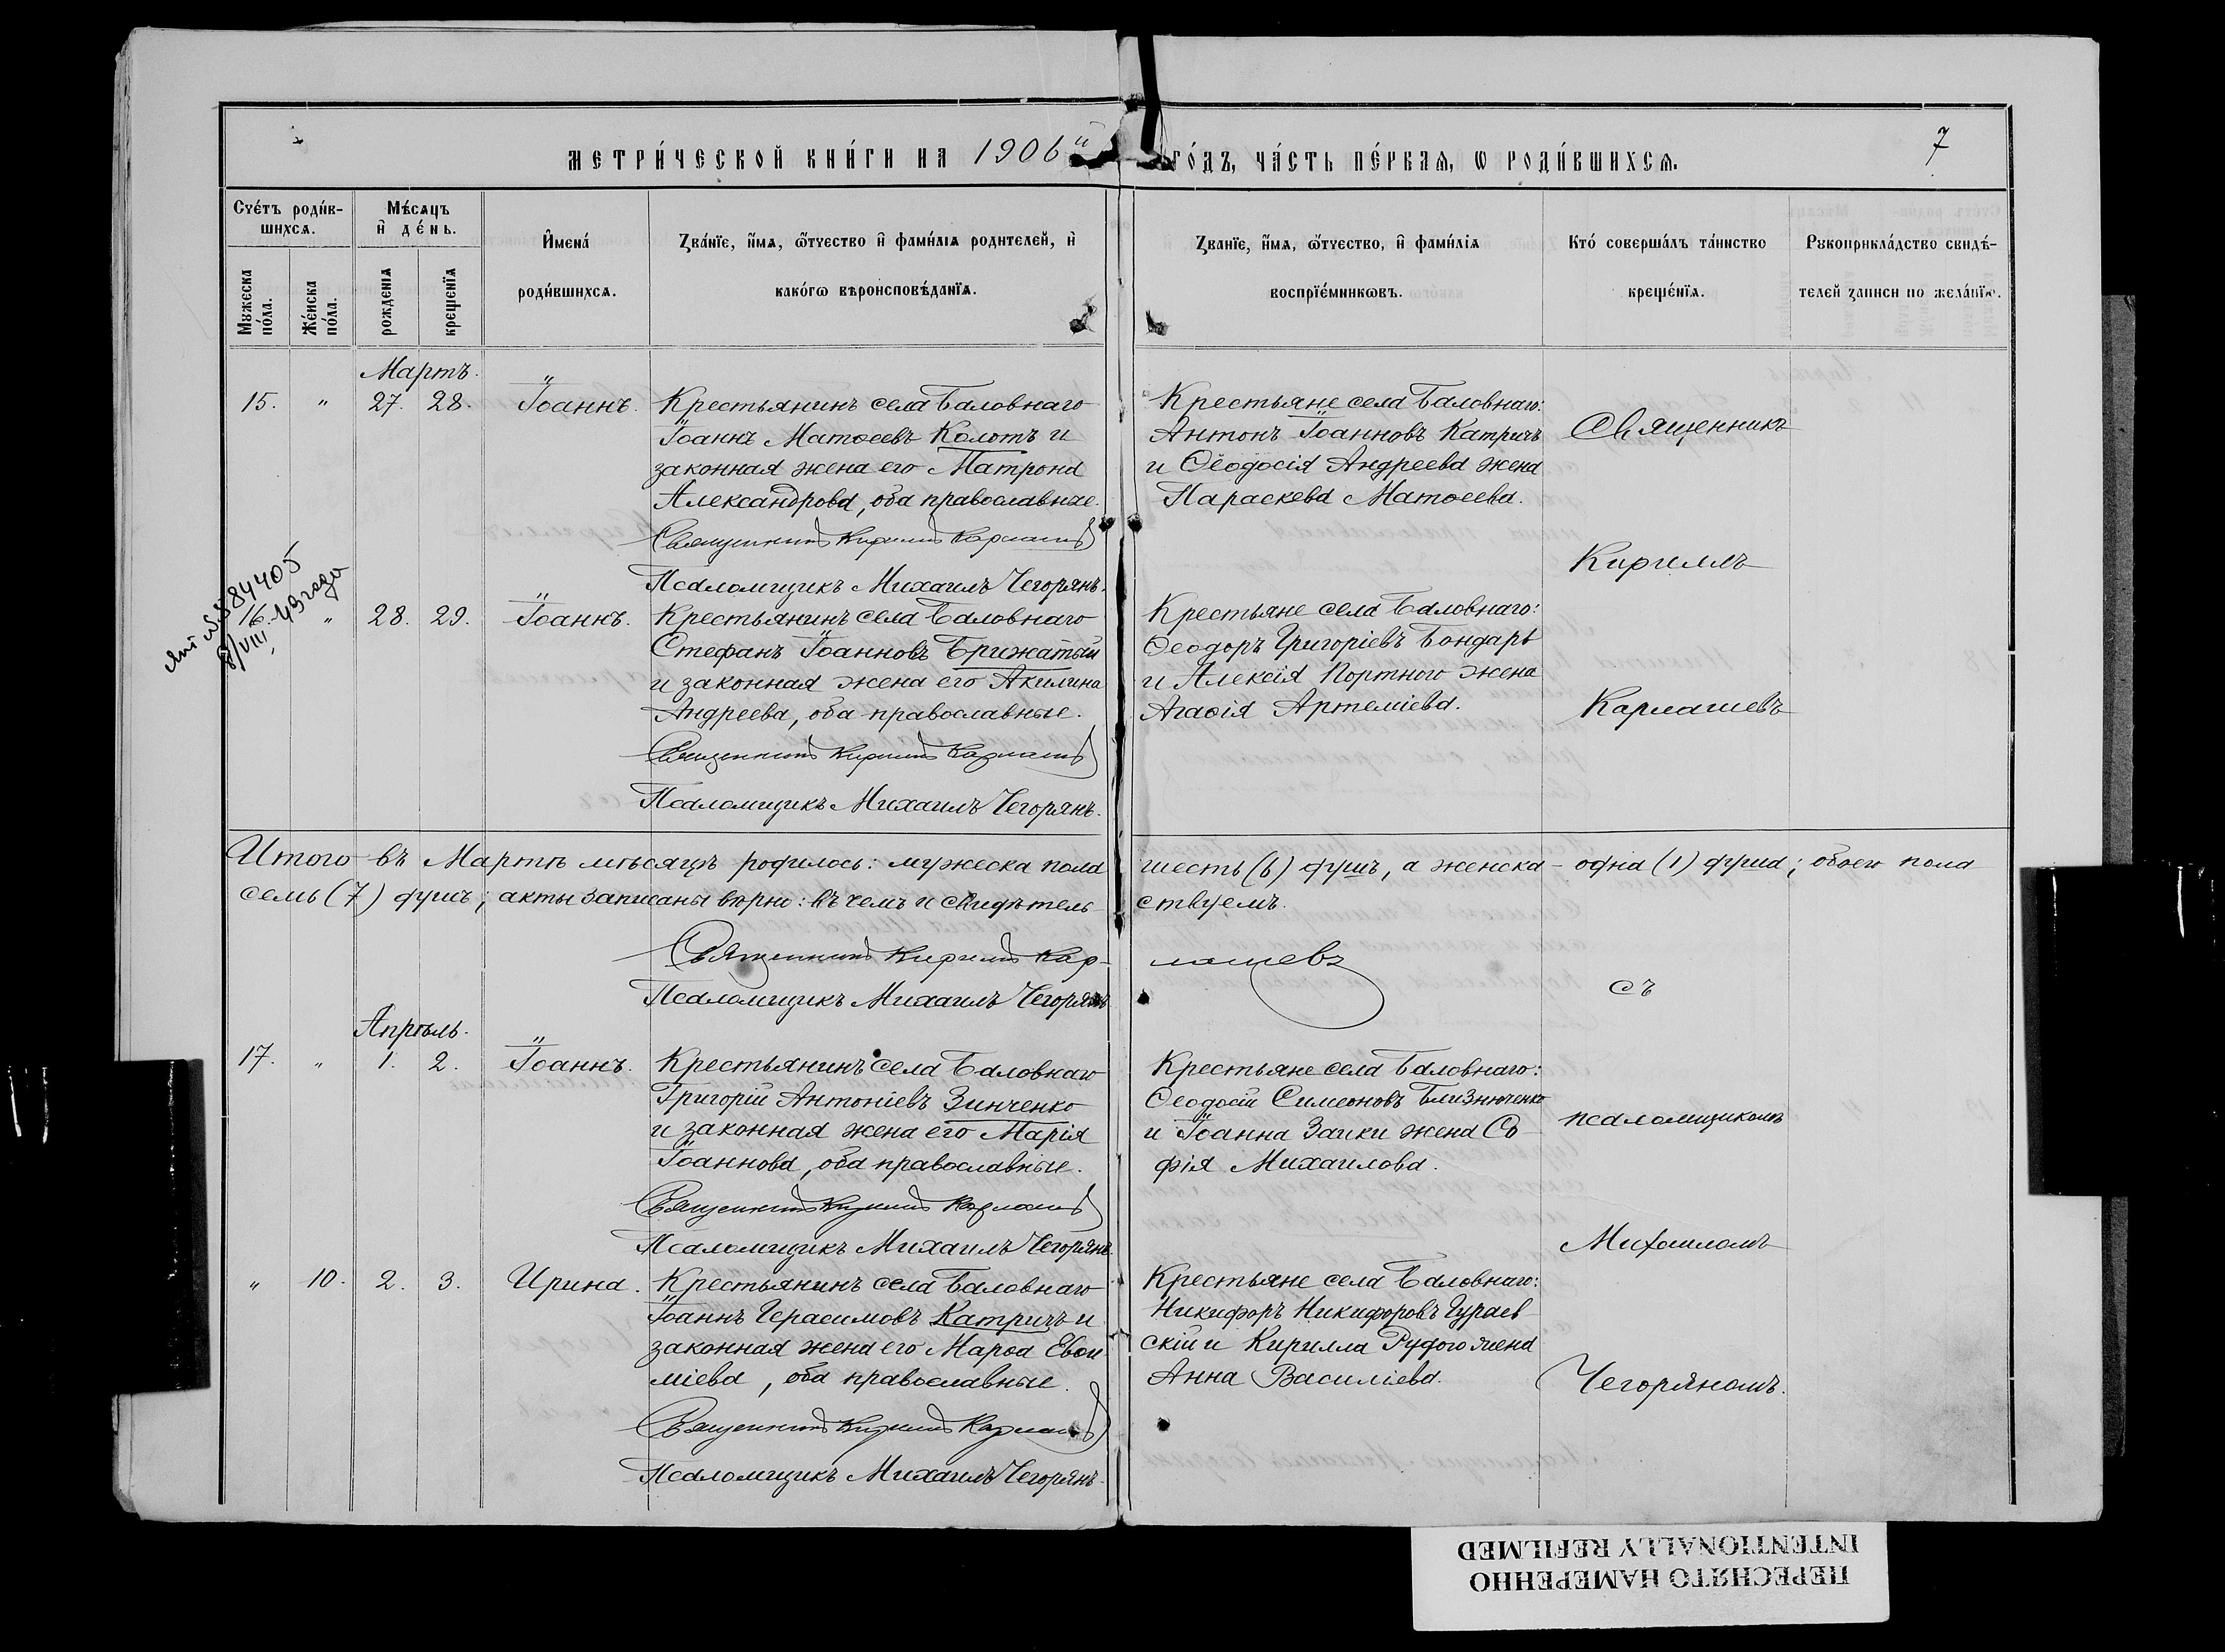 МЕТРИ́ЧЕСКОЙ КНИ́ГИ НА 1906й ГО́ДЪ, ЧА́СТЬ ПЕ́РВАЯ, Ѡ РОДИ́ВШИХСЯ.
7
Сче́тъ роди́в-
шихся.
Мужеска
по́ла.
Же́нска
по́ла.
Мѣ́сяцъ
и де́нь.
рожденія
крещенїя
Имена́
роди́вшихся.
Зва́нїе, имя, ѻтчество и фами́лія родителей, и
како́гѡ вѣроисповѣ́данїя.
Званїе, имя, ѻтчество, и фами́лїя
воспрїе́мникѡвъ.
Кто́ соверша́лъ та́инство
креще́нїя.
Рукоприкла́дство свидѣ́-
телей записи по жела́нїю.
Мартъ.
15. " 27. 28. Іоаннъ.
Крестьянинъ села Баловнаго
Іоаннъ Матѳеевъ Колотъ и
законная жена его Матрона
Александрова, оба православные.
Священникъ Кириллъ Кармашевъ
Псаломщикъ Михаилъ Чегорянъ.
Крестьяне села Баловнаго:
Антонъ Іоанновъ Катричъ
и Ѳеодосія Андреева жена
Параскева Матѳеева.
Священникъ
Кириллъ
Кармашевъ
съ
псаломщикомъ
Михаиломъ
Чегоряномъ.
№ 884405
8/VIII 43 года
16. " 28. 29. Іоаннъ.
Крестьянинъ села Баловнаго
Стефанъ Іоанновъ Брижатый
и законная жена его Акилина
Андреева, оба православные.
Священникъ Кириллъ Кармашевъ
Псаломщикъ Михаилъ Чегорянъ.
Крестьяне села Баловнаго:
Ѳеодоръ Григоріевъ Бондарь
и Алексія Портного жена
Агаѳія Артеміева.
Итого въ Мартѣ мѣсяцѣ родилось: мужеска пола шесть (6) душъ, а женска – одна (1) душа; обоего пола
семь (7) душъ; акты записаны вѣрно: въ чемъ и свидѣтельствуемъ.
Священникъ Кириллъ Кармашевъ
Псаломщикъ Михаилъ Чегорянъ
Апрѣль.
17. " 1. 2. Іоаннъ.
Крестьянинъ села Баловнаго
Григорій Антоніевъ Зинченко
и законная жена его Марія
Іоаннова, оба православные.
Священникъ Кириллъ Кармашевъ
Псаломщикъ Михаилъ Чегорянъ.
Крестьяне села Баловнаго:
Ѳеодосій Симеоновъ Близнюченко
и Іоанна Заики жена Со
фія Михаилова.
" 10. 2. 3. Ирина.
Крестьянинъ села Баловнаго
Іоаннъ Герасимовъ Катричъ и
законная жена его Марѳа Евѳи
міева, оба православные.
Священникъ Кириллъ Кармашевъ
Псаломщикъ Михаилъ Чегорянъ.
Крестьяне села Баловнаго:
Никифоръ Никифоровъ Гураев
скій и Кирилла Рудого жена
Анна Василіева.
ПЕРЕСНЯТО НАМЕРЕННО
INTENTIONALLY REFILMED